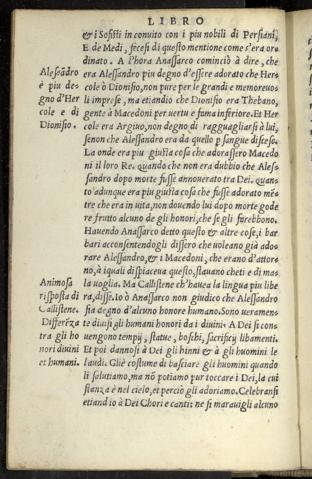 LIBRO
& i Sofisti in conuito con i piu nobili di Persiani,
E de Medi, fecesi di questo mentione come s'era or
dinato. A l'hora Anassarco cominciò à dire, che
Alesādro
è piu de
gno d'Her
cole e di
Dionisio.
era Alessandro piu degno d'essere adorato che Her
cole ò Dionisio, non pure per le grandi e memoreuo
li imprese, ma etiandio che Dionisio era Thebano,
gente à Macedoni per uertu e fama inferiore. Et Her
cole era Argiuo, non degno di ragguagliarsi à lui,
senon che Alessandro era da quello p sangue disceso.
La onde era piu giusta cosa che adorassero Macedo
ni il loro Re. quando che non era dubbio che Ales
sandro dopo morte fusse annouerato tra Dei. quan
to adunque era piu giusta cosa che fusse adorato mē
tre che era in uita, non douendo lui dopo morte gode
re frutto alcuno de gli honori, che se gli farebbono.
Hauendo Anassarco detto questo & altre cose, i bar
bari acconsentendogli dissero che uoleano già ado
rare Alessandro, & i Macedoni, che erano d'attor
no, à iquali dispiaceua questo, stauano cheti e di ma
Animosa
risposta di
Callistene.
Differēza
tra gli ho
nori diuini
et humani.
la uoglia. Ma Callistene ch'hauea la lingua piu libe
ra, disse. Io ò Anassarco non giudico che Alessandro
sia degno d'alcuno honore humano. Sono ueramen
te diuisi gli humani honori da i diuini. A Dei si con
uengono tempij, statue, boschi, sacrificij libamenti.
Et poi dannosi à Dei gli hinni & à gli huomini le
laudi. Gliè costume di basciare gli huomini quando
li salutiamo, ma nō potiamo pur toccare i Dei, la cui
stanza è nel cielo, et perciò gli adoriamo. Celebransi
etiandio à Dei Chori e canti: ne si marauigli alcuno